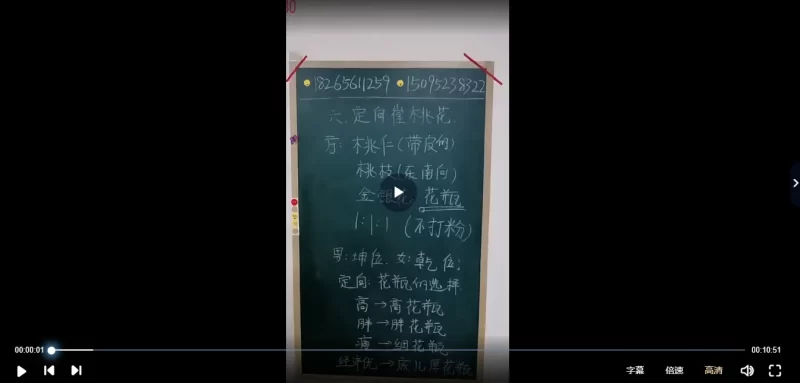 18265611259 15095238322
六.定向崔桃花.
方: 桃仁(带皮的)
桃枝(东南向)
金银花. 花瓶
1:1:1 (不打粉)
男:坤位. 女:乾位;
定向: 花瓶的选择
高→高花瓶
胖→胖花瓶
→细花瓶
经济优→底儿厚花瓶
00:00:01
00:10:51
字幕 倍速 高清